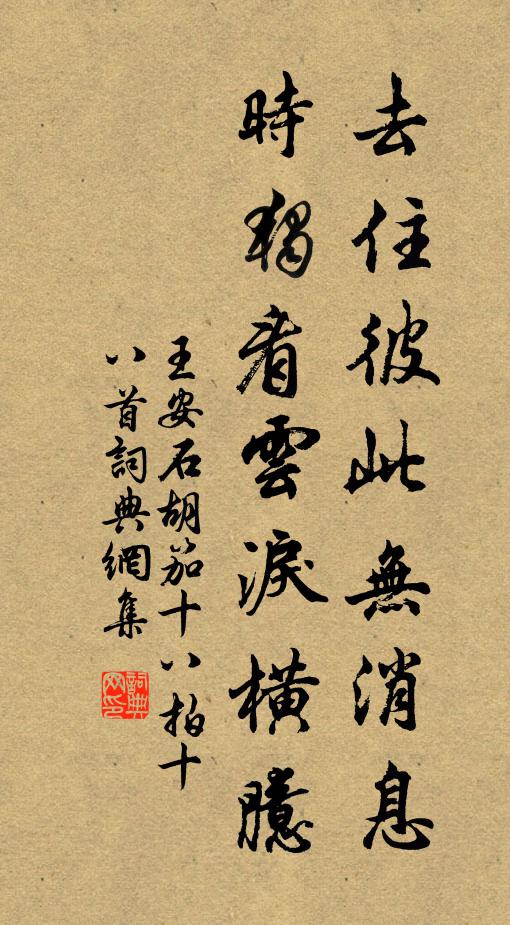 去住彼此無消息
時獨看雲淚橫臆
王安石胡笳十八拍十
八首詞典網集
詞典
网印